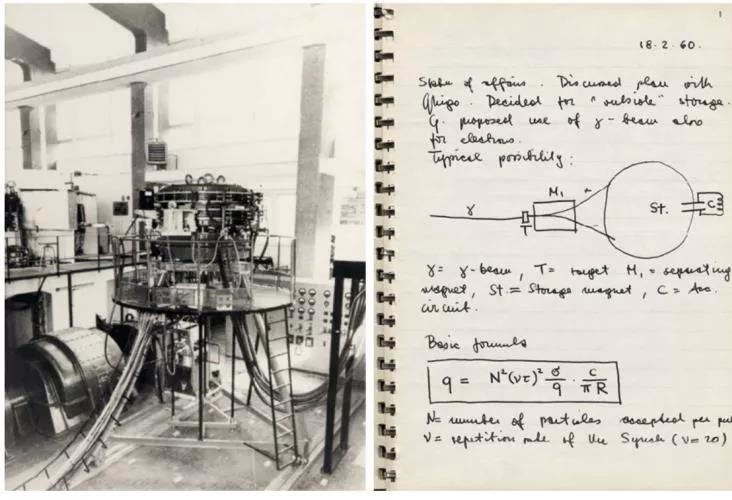 1
18.2.60.
State of affairs. Discussed plan with
Ghigo. Decided for "outside" storage.
G. proposed use of γ-beam also
for electrons.
Typical possibility:
γ T M₁ + - St. C
γ = γ-beam, T = target M₁ = separating
magnet, St. = Storage magnet, C = Acc.
circuit.
Basic formula
q = N²(ντ)² σ/q · c/πR
N = number of particles accepted per pul
ν = repetition rate of the Synch (ν = 20)